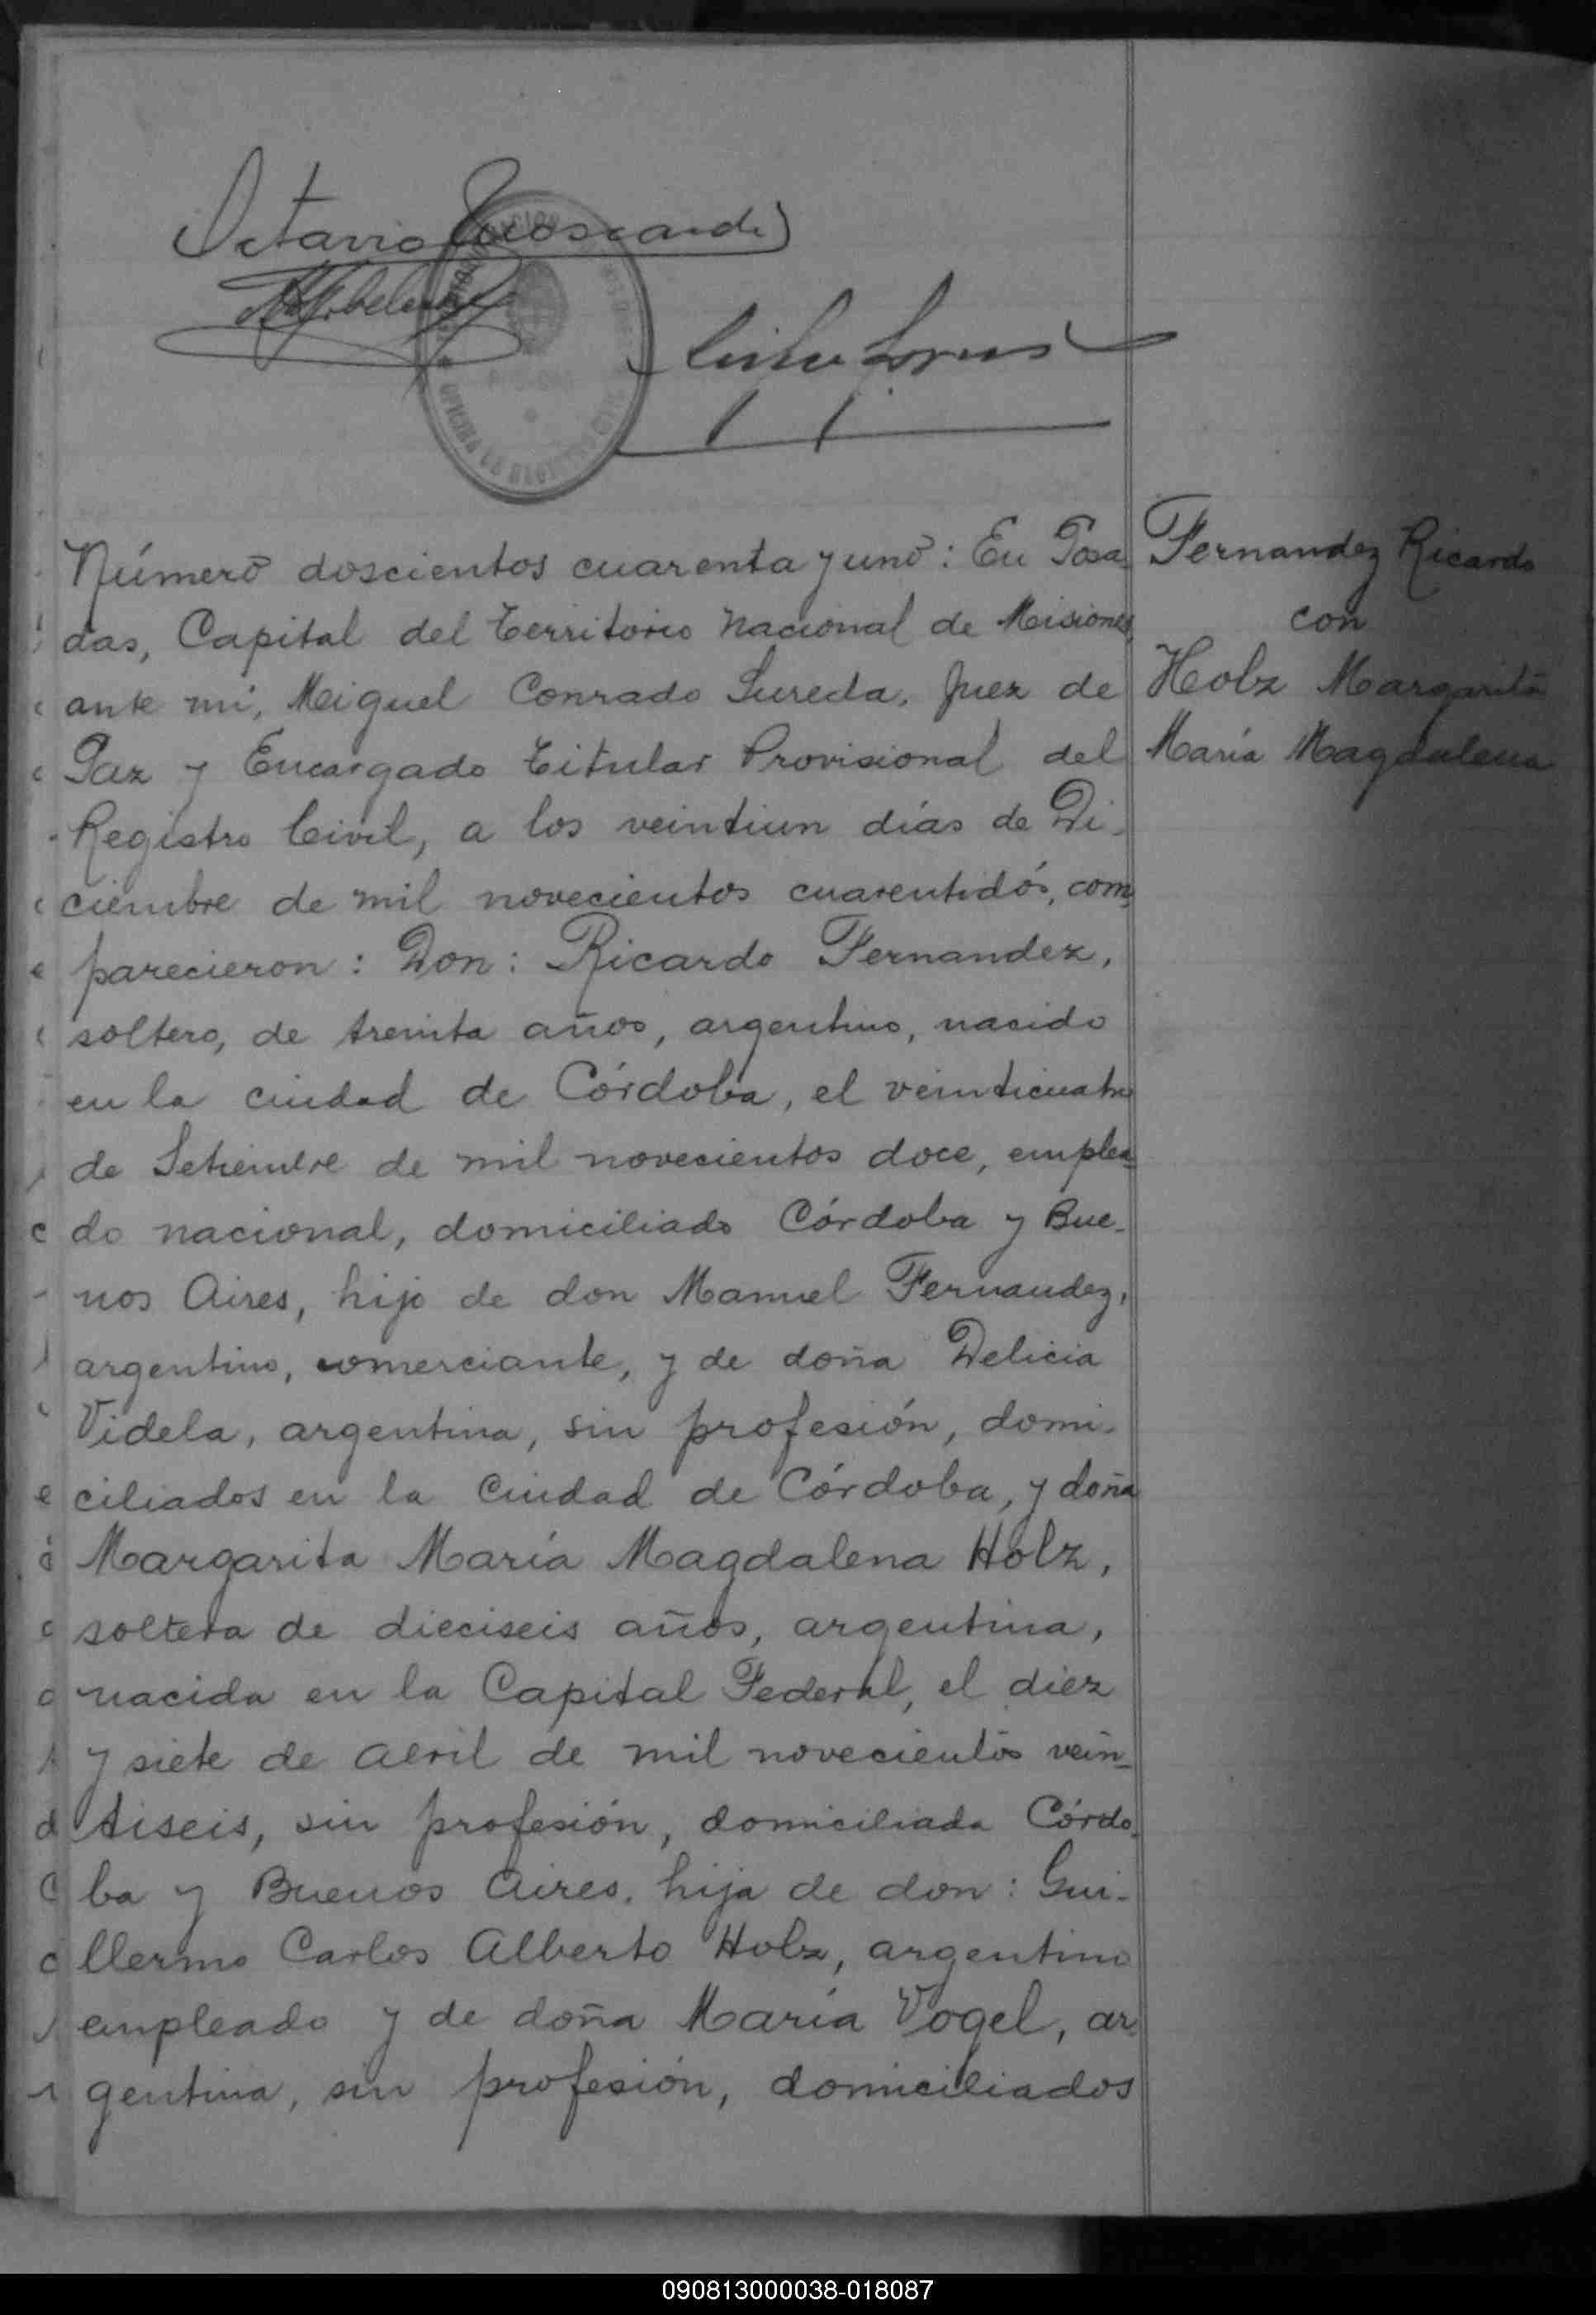 Octavio
OFICINA DE REGISTRO CIVIL
Número doscientos cuarenta y uno: En Posa
das, Capital del Territorio Nacional de Misiones,
ante mí, Miguel Conrado Sureda, Juez de
Paz y Encargado Titular Provisional del
Registro Civil, a los veintiun días de Di-
ciembre de mil novecientos cuarentidós, com-
parecieron: Don: Ricardo Fernandez,
soltero, de treinta años, argentino, nacido
en la ciudad de Córdoba, el veinticuatro
de Setiembre de mil novecientos doce, emplea-
do nacional, domiciliado Córdoba y Bue-
nos Aires, hijo de don Manuel Fernandez,
argentino, comerciante, y de doña Delicia
Videla, argentina, sin profesión, domi-
ciliados en la Ciudad de Córdoba, y doña
Margarita María Magdalena Holz,
soltera de dieciseis años, argentina,
nacida en la Capital Federal, el diez
y siete de Abril de mil novecientos vein-
tiseis, sin profesión, domiciliada Córdo-
ba y Buenos Aires, hija de don: Gui-
llermo Carlos Alberto Holz, argentino
empleado y de doña María Vogel, ar
gentina, sin profesión, domiciliados
Fernandez Ricardo
con
Holz Margarita
María Magdalena
090813000038-018087